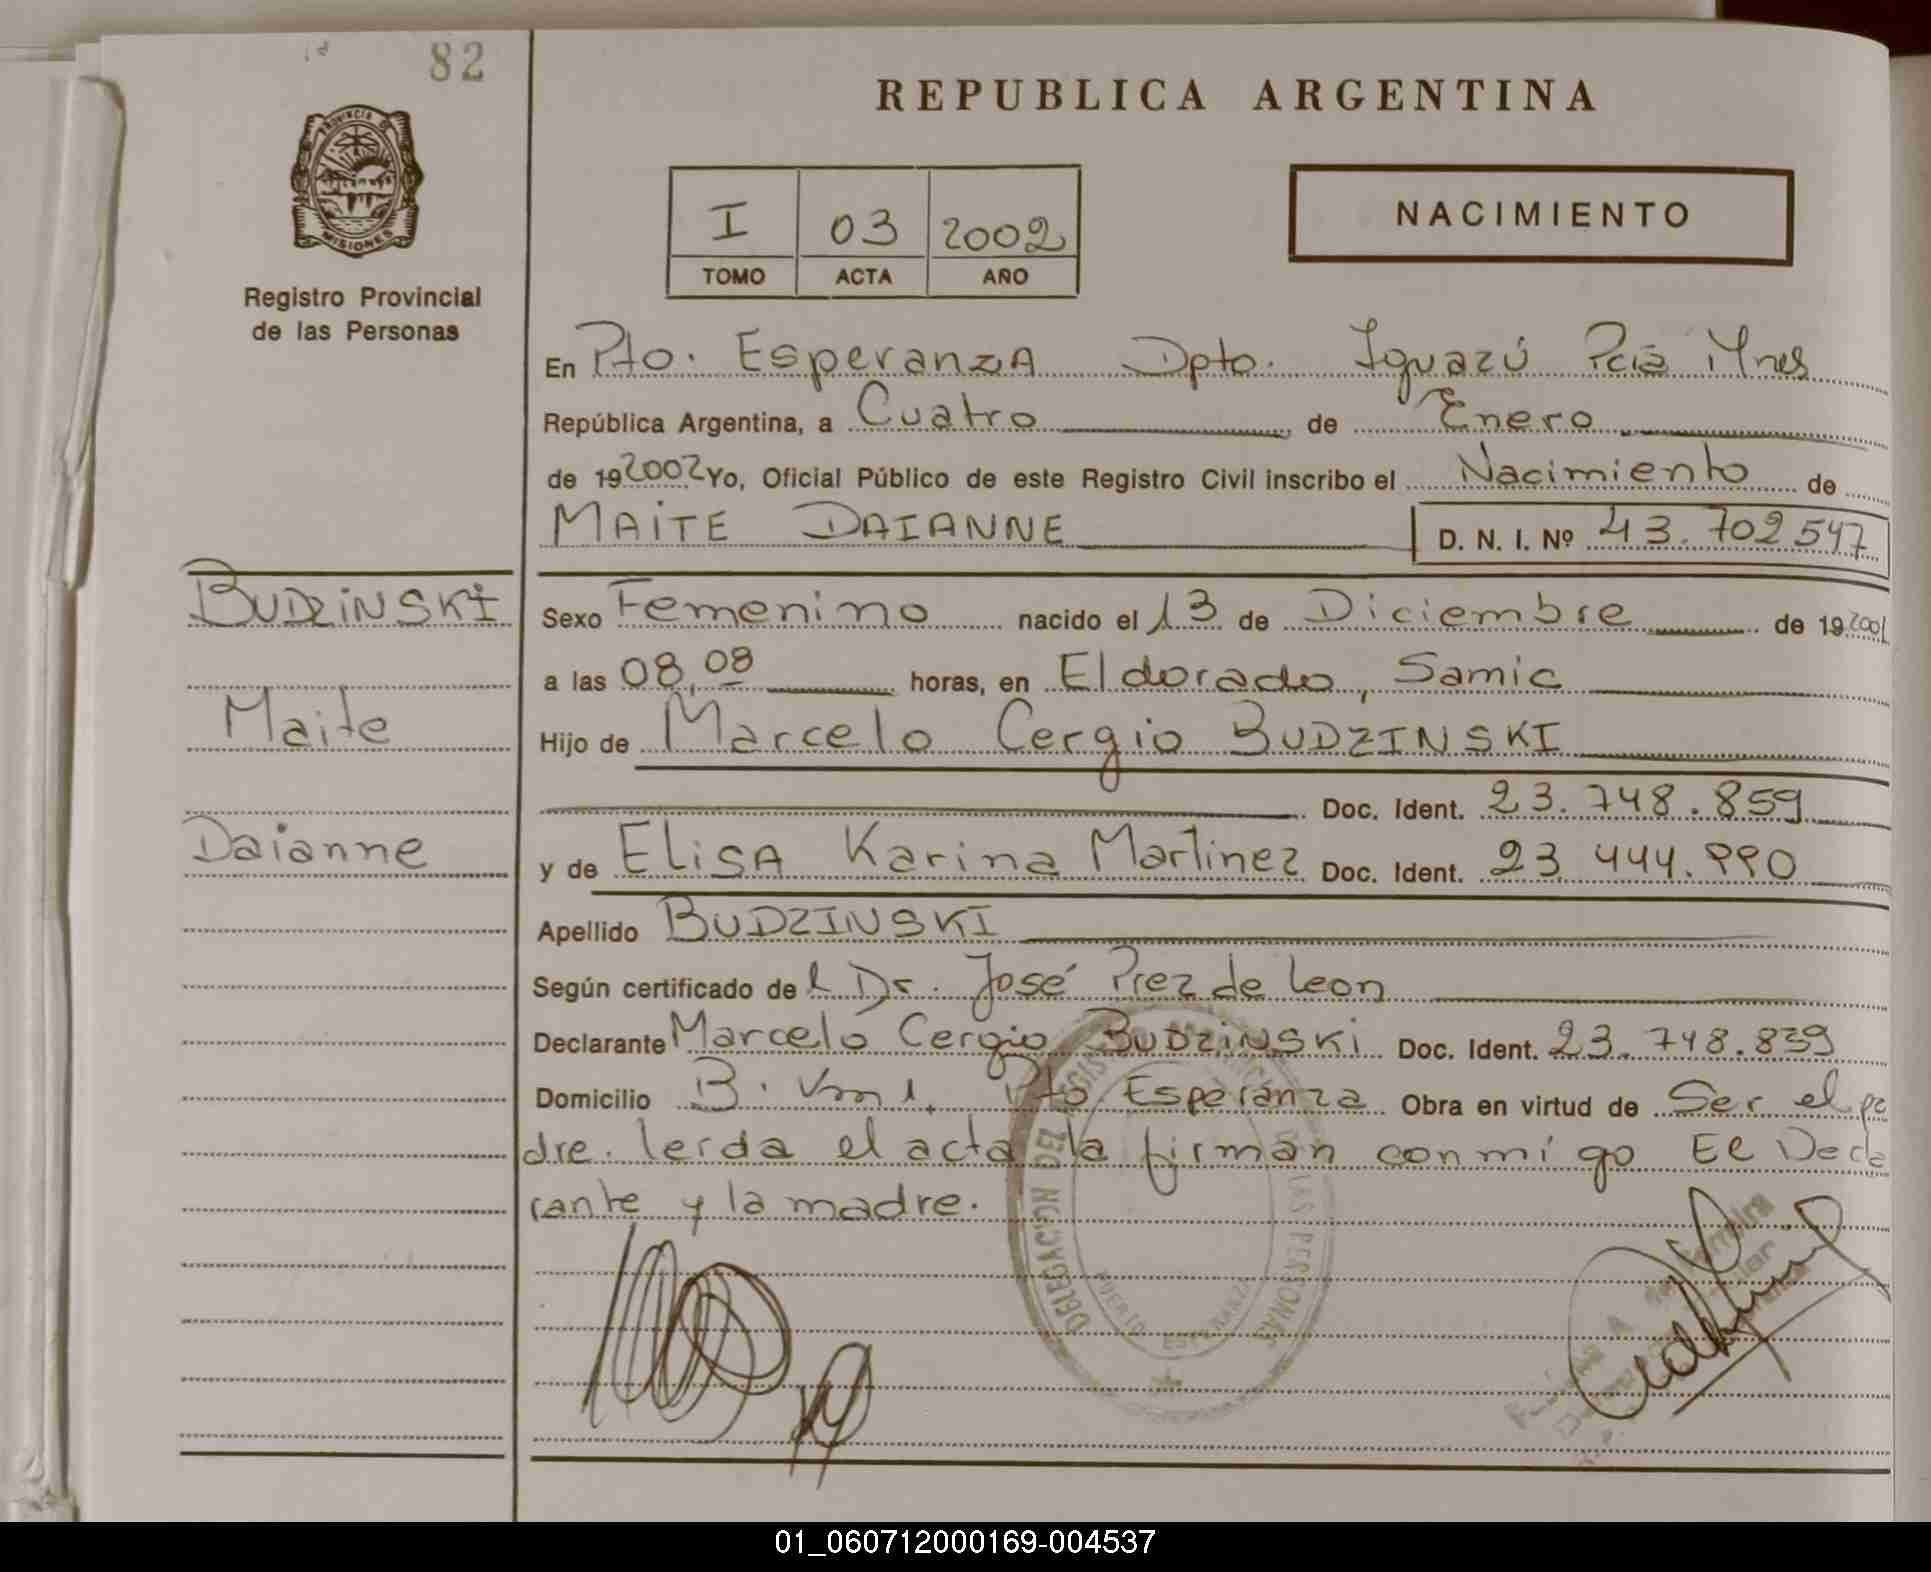 82
REPUBLICA ARGENTINA
PROVINCIA DE
MISIONES
Registro Provincial
de las Personas
I 03 2002
TOMO ACTA AÑO
NACIMIENTO
En Pto. EsperanzA Dpto. Iguazú Pcia Mnes
República Argentina, a Cuatro de Enero
de 19 2002 Yo, Oficial Público de este Registro Civil inscribo el Nacimiento de
MAITE DAIANNE D. N. I. Nº 43.702547
BUDZINSKI
Maite
Daianne
Sexo Femenino nacido el 13 de Diciembre de 19 2001
a las 08,08 horas, en Eldorado, Samic
Hijo de Marcelo Cergio BUDZINSKI
Doc. Ident. 23.748.859
y de ElisA Karina Martinez Doc. Ident. 23 444.990
Apellido BUDZINSKI
Según certificado de l Dr. José Prez de Leon
Declarante Marcelo Cergio BUDZINSKi Doc. Ident. 23.748.859
Domicilio B. Pto Esperanza Obra en virtud de Ser el pa
dre. lerda el acta la firman conmigo El Decla
rante y la madre.
DELEGACION DEL REGISTRO PROVINCIAL DE LAS PERSONAS
PUERTO ESPERANZA
01_060712000169-004537